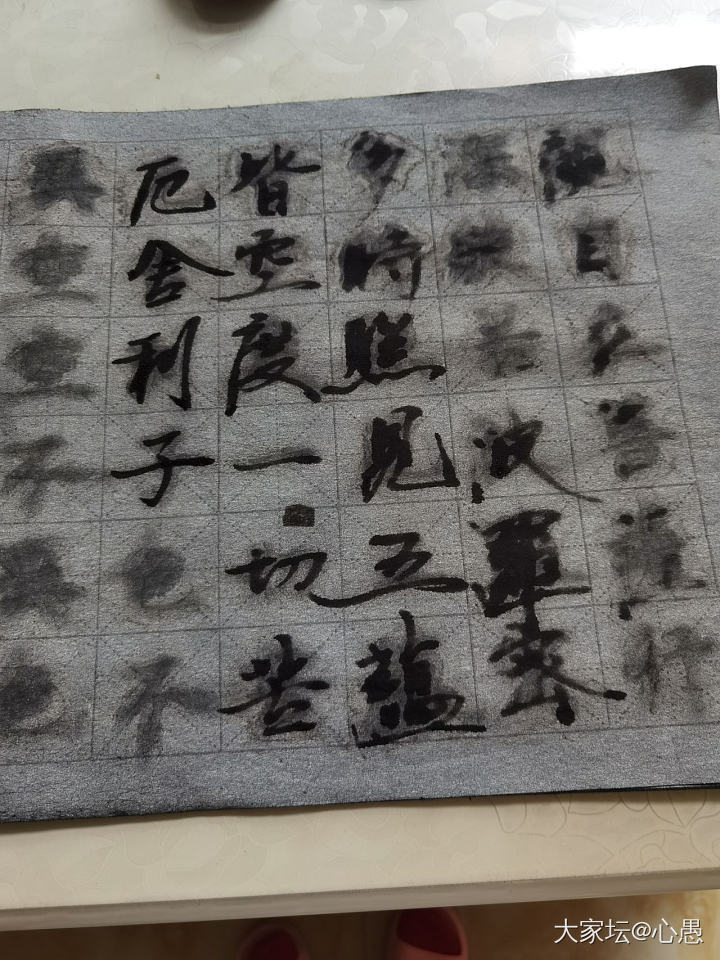 觀自在菩薩行
深般若波羅密
多時照見五蘊
皆空度一切苦
厄舍利子色不
異空空不異色
大家坛@心愚